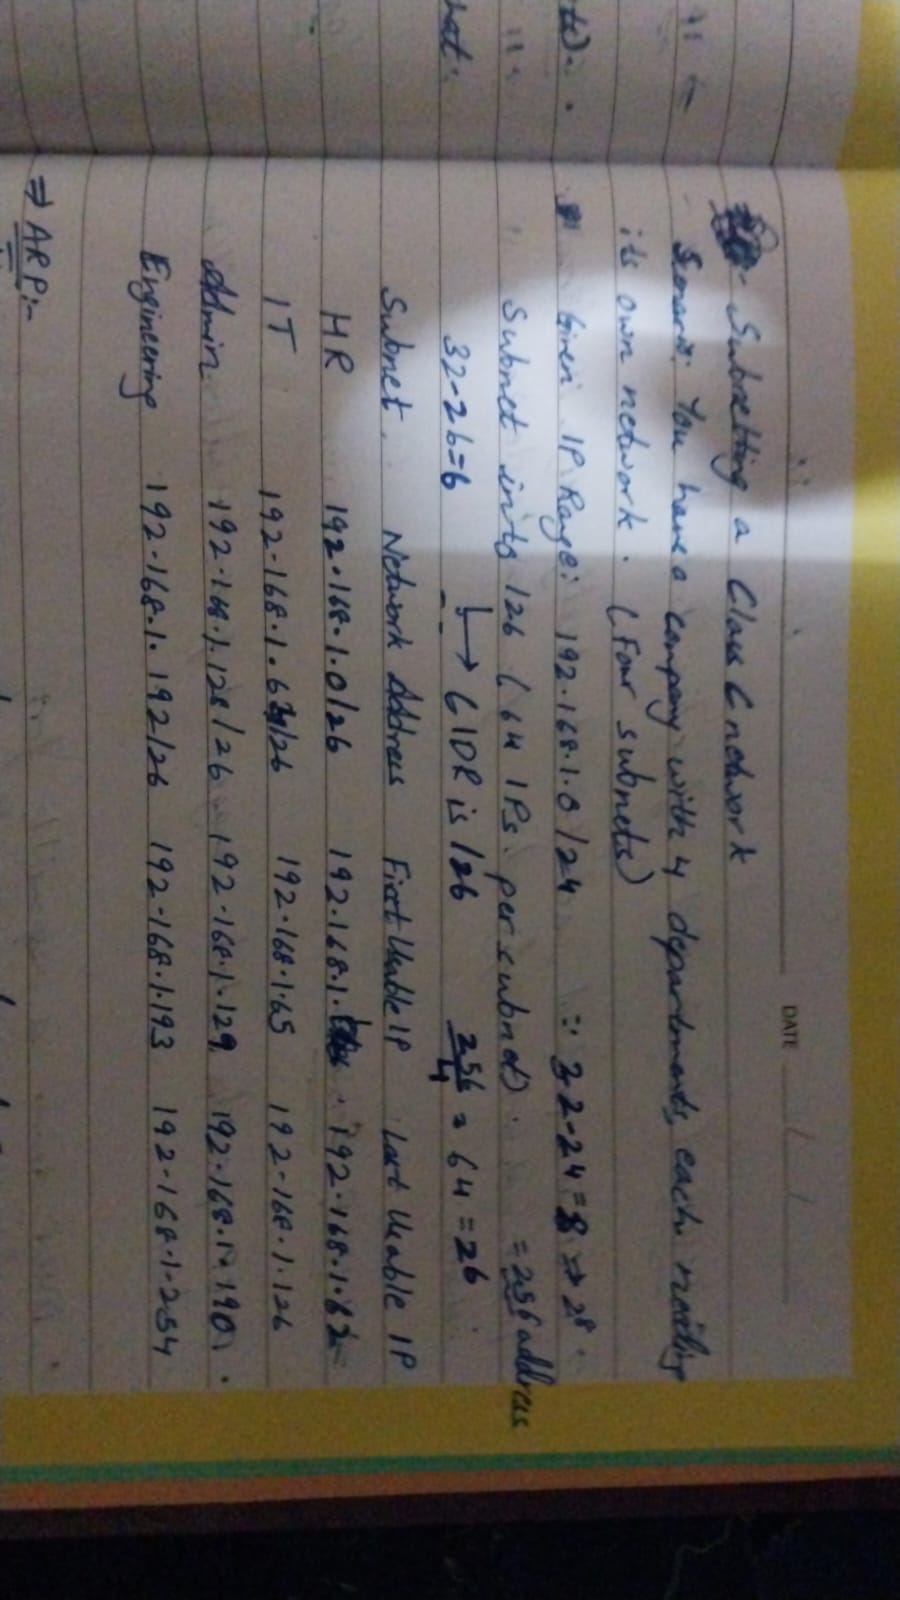 DATE
Subnetting a Class C network
Scenario: You have a company with 4 departments, each needing
its own network. (Four subnets)
Given IP Range: 192.168.1.0/24 ∵ 32-24=8 ⇒ 2⁸
= 256 address
Subnet into /26 (64 IPs. per subnet).
32-26=6 ↳ CIDR is /26 256/4 = 64 = 26
Subnet. Network Address First Usable IP Last Usable IP
HR 192.168.1.0/26 192.168.1. 192.168.1.62
IT 192.168.1.64/26 192.168.1.65 192.168.1.126
Admin. 192.168.1.128/26 192.168.1.129 192.168.1.190
Engineering 192.168.1.192/26 192.168.1.193 192.168.1.254
⇒ ARP:-